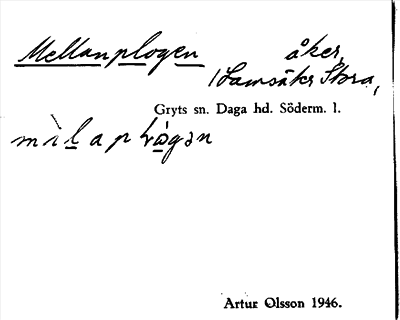 Mellanplogen åker,
1 Lamsåker Stora,
Gryts sn. Daga hd. Söderm. l.
Artur Olsson 1946.